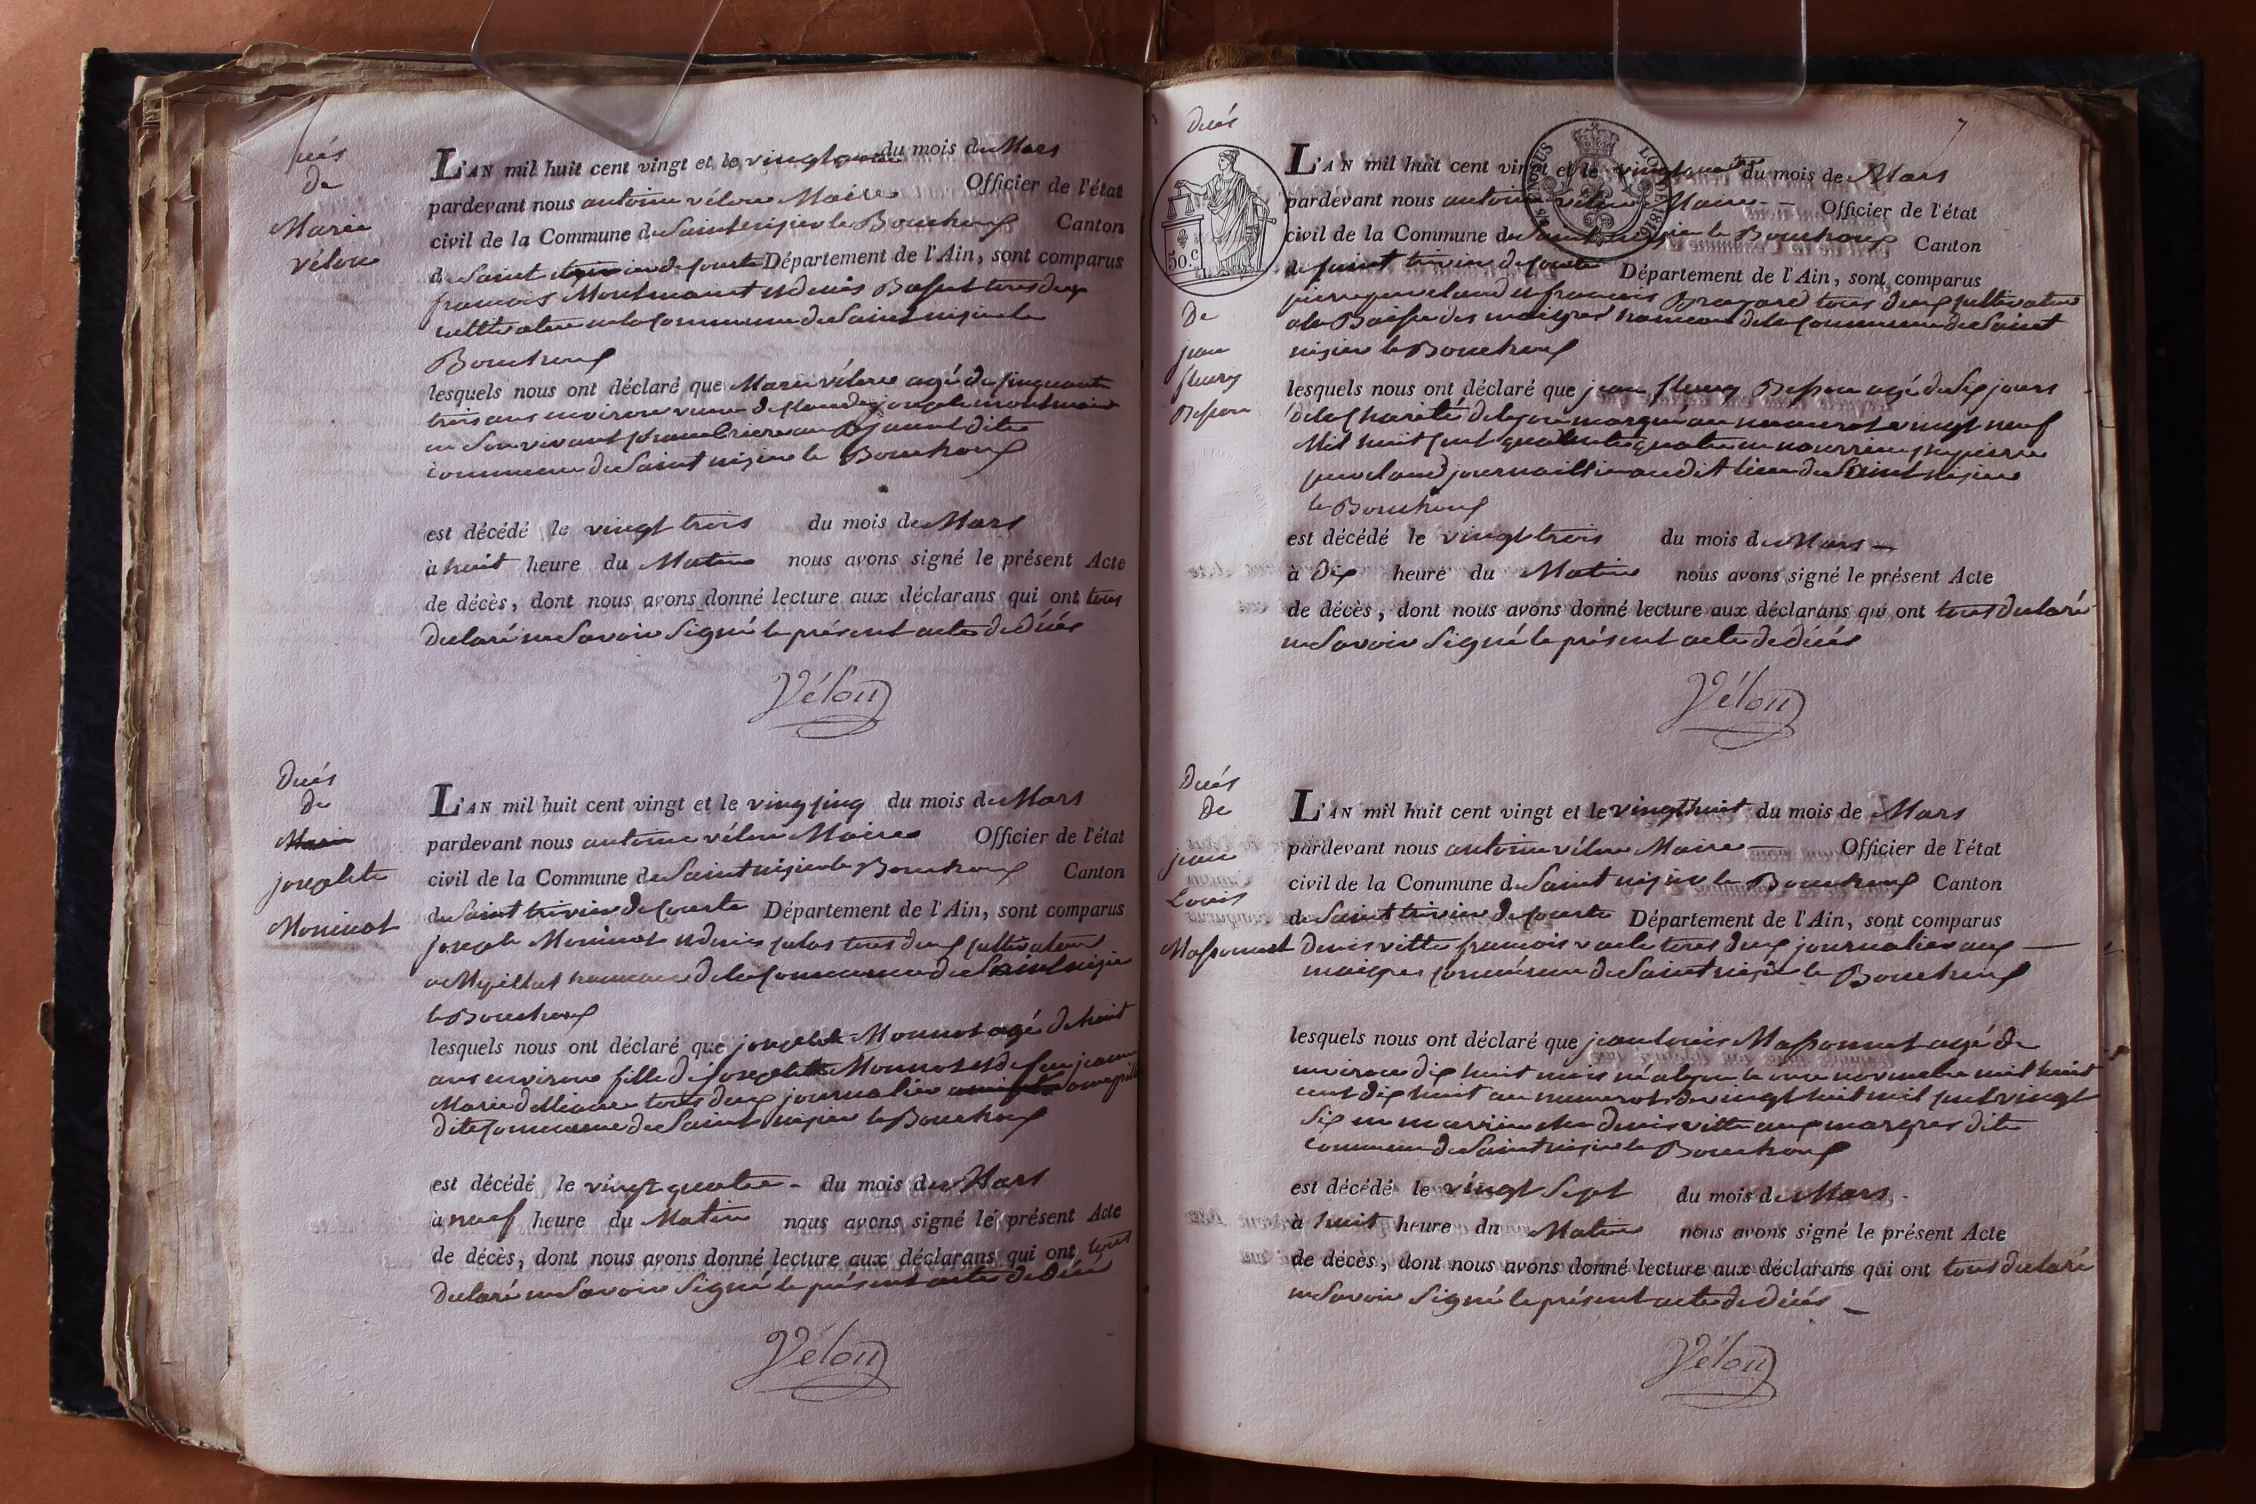 décés
de
Marie
vélon
L'AN mil huit cent vingt et le vingt quatre du mois de Mars
pardevant nous antoine vélon Maire Officier de l'état
civil de la Commune de Saint nizier le Bouchoux Canton
de Saint trivier de Courte Département de l'Ain, sont comparus
francois Montmaint et denis Bassut tous deux
cultivateur en la Commune de Saint nizier le
Bouchoux
lesquels nous ont déclaré que Marie vélon agé de Cinquante
trois ans environ veuve de Claude joseph
en Son vivant au dite
commune de Saint nizier le Bouchoux
est décédé le vingt trois du mois de Mars
à huit heure du Matin nous avons signé le présent Acte
de décès, dont nous avons donné lecture aux déclarans qui ont tous
declaré ne Savoir Signé le présent acte de décés
Vélon
Décés
de
josephte
Moninot
L'AN mil huit cent vingt et le vingt cinq du mois de Mars
pardevant nous antoine vélon Maire Officier de l'état
civil de la Commune de Saint nizier le Bouchoux Canton
de Saint trivier de Courte Département de l'Ain, sont comparus
joseph Moninot et denis tous deux Cultivateur
a hameau de la Commune de Saint nizier
le Bouchoux
lesquels nous ont déclaré que josephte Moninot agé de huit
ans environ fille de joseph Moninot et de feu jeanne
Marie tous deux journalier
dite Commune de Saint nizier le Bouchoux
est décédé le vingt quatre - du mois de Mars
à neuf heure du Matin nous avons signé le présent Acte
de décès, dont nous avons donné lecture aux déclarans qui ont tous
Declaré ne Savoir Signé le présent acte de décé
Vélon
7
Décés
50.c
De
jean
fleury
Besson
L'AN mil huit cent vingt et le vingt quatre du mois de Mars
pardevant nous antoine vélon Maire - - Officier de l'état
civil de la Commune de Saint nizier le Bouchoux Canton
de Saint trivier de Courte Département de l'Ain, sont comparus
pierre et francois Brayard tous deux Cultivateur
a la Basse des maigres hameau de la Commune de Saint
nizier le Bouchoux
lesquels nous ont déclaré que jean fleury Besson agé de Six jours
de la Charité de Lyon marqué au numerot vingt neuf
Mil huit Cent quatre en nourrice chez pierre
journaillier audit lieu de Saint nizier
le Bouchoux
est décédé le vingt trois du mois de Mars —
à Dix heure du Matin nous avons signé le présent Acte
de décès, dont nous avons donné lecture aux déclarans qui ont tous declaré
ne Savoir Signé le présent acte de décés
Vélon
Décés
De
jean
Louis
Massonnet
L'AN mil huit cent vingt et le vingt huit du mois de Mars
pardevant nous antoine vélon Maire — Officier de l'état
civil de la Commune de Saint nizier le Bouchoux Canton
de Saint trivier de Courte Département de l'Ain, sont comparus
Denis vitte francois tous deux journalier aux —
maigres Commune de Saint nizier le Bouchoux
lesquels nous ont déclaré que jean louis Massonnet agé de
environ dix huit mois né a lyon le onze novembre mil huit
cent dix huit au numerot de vingt huit mil Cent vingt
Six en nourrice chez denis vitte aux maigres dite
commune de Saint nizier le Bouchoux
est décédé le vingt Sept du mois de Mars -
à huit heure du Matin nous avons signé le présent Acte
de décès, dont nous avons donné lecture aux déclarans qui ont tous declaré
ne Savoir Signé le présent acte de décés —
Vélon